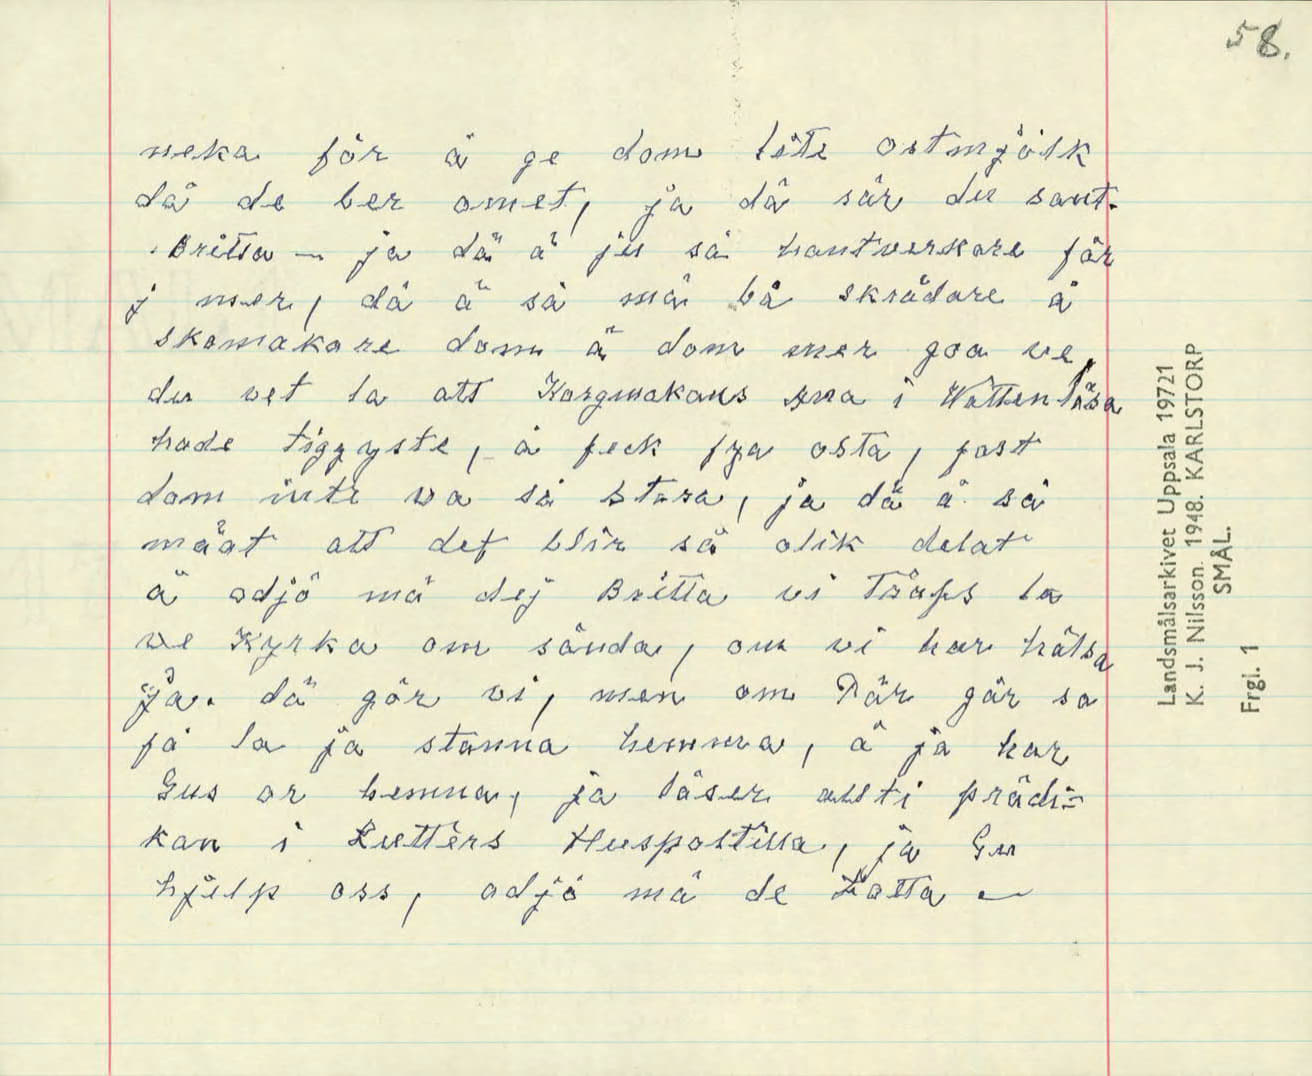 58.
neka för å ge dom lite ostmjölk
då de ber omet, ja dä sär du sant.
Britta — ja dä ä ju så hantverkare får
j mer, dä ä så mä bå skrädare å
skomakare dom ä dom mer goa ve,
du vet la att Korgmakans i
hade tiggyste, å feck fya osta, fast
dom inte va så stora, ja dä ä så
mäat att det blir så olik delat
å adjö mä dej Britta vi Träfs la
ve Kyrka om sönda, om vi har hälsa
ja. dä gör vi, men om Pär går so
få la ja stanna hemma, å ja har
Gus or hemma, ja läser allti prädi=
kan i Lutters Huspostilla, ja Gu
hjelp oss, adjö mä de Lotta —
Landsmålsarkivet Uppsala 19721
K. J. Nilsson. 1948. KARLSTORP
SMÅL.
Frgl. 1